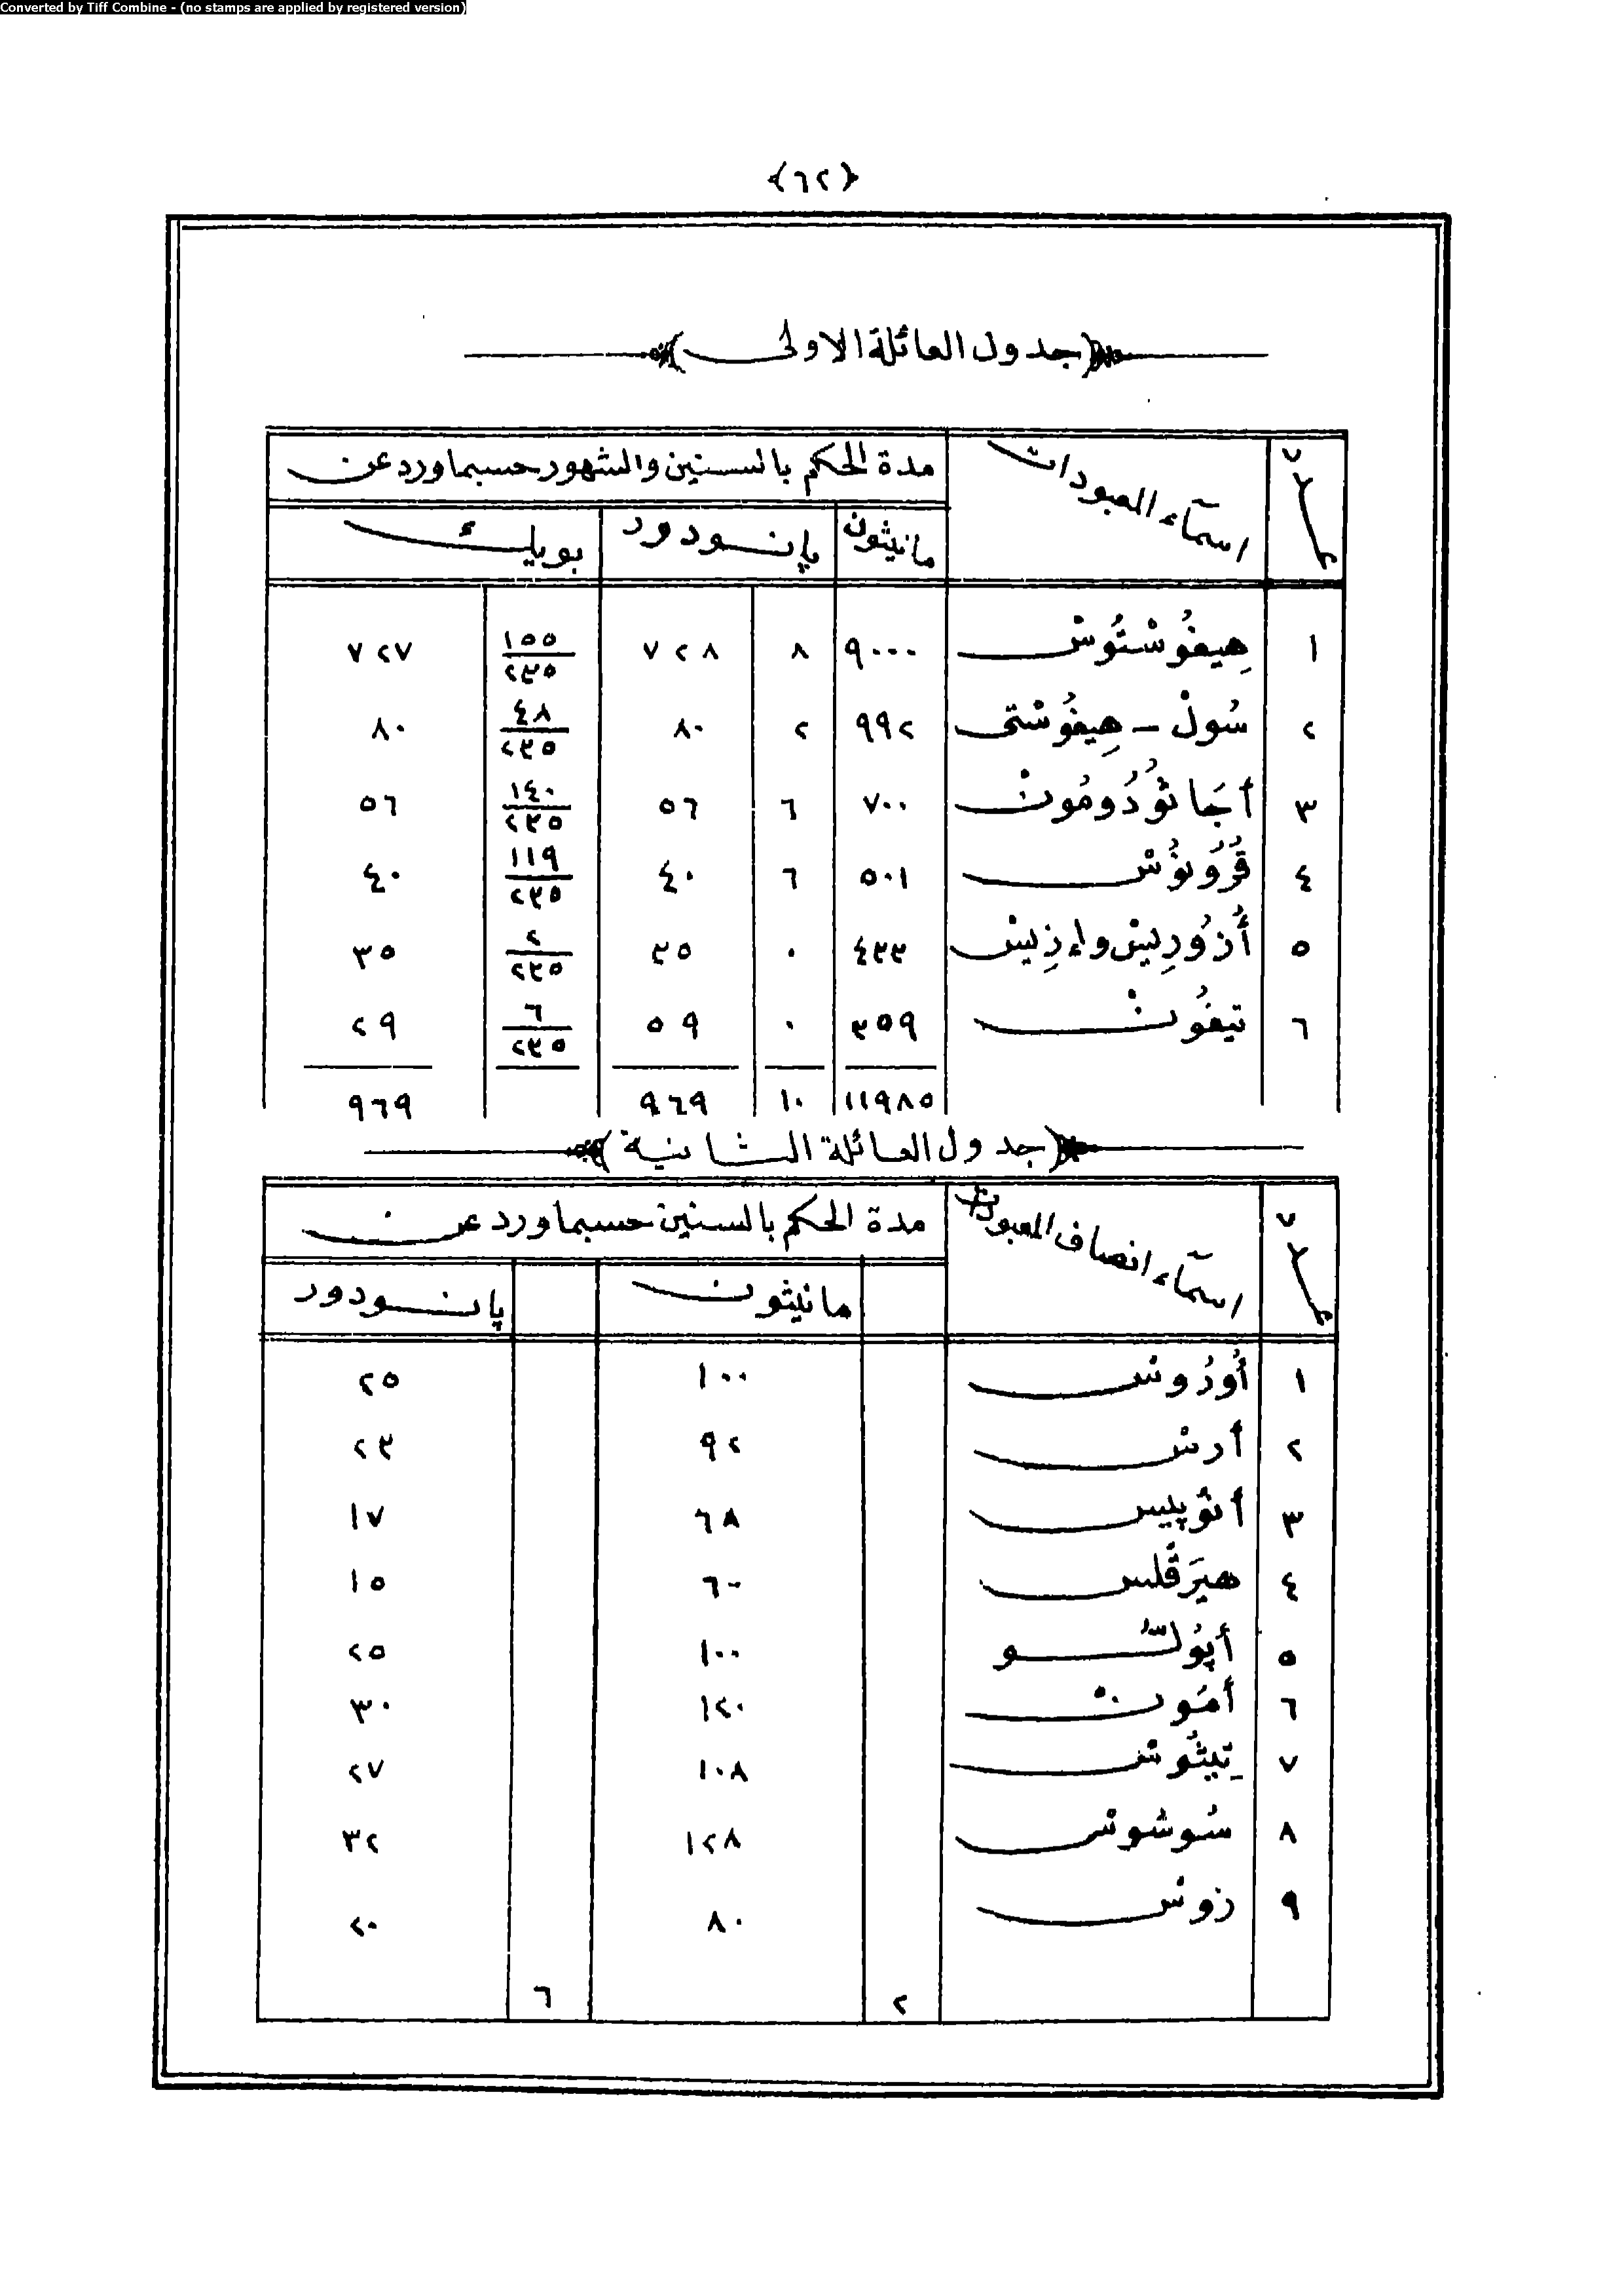 Converted by Tiff Combine - (no stamps are applied by registered version)
﴿٦٢﴾
﴿جدول العائلة الاولى﴾
اسمآء المعبودات مدة الحكم بالسنين والشهور حسبما ورد عن
مانيثون پانودور بويك
١ هِيفُوسْتُوسْ ٩٠٠٠ ٨ ٧٢٨ ١٥٥/٢٣٥ ٧٢٧
٢ سُولْ - هِيفُوسْتى ٩٩٢ ٢ ٨٠ ٤٨/٢٣٥ ٨٠
٣ أجَاثُودُومُونْ ٧٠٠ ٦ ٥٦ ١٤٠/٢٣٥ ٥٦
٤ قُرُونُسْ ٥٠١ ٦ ٤٠ ١١٩/٢٣٥ ٤٠
٥ أُزُورِيسْ وإزِيسْ ٤٣٣ ٠ ٣٥ ٢/٢٣٥ ٣٥
٦ تيفُونْ ٣٥٩ ٠ ٥٩ ٦/٢٣٥ ٢٩
١١٩٨٥ ١٠ ٩٦٩ ٩٦٩
﴿جدول العائلة الثانية﴾
اسمآء انصاف المعبودات مدة الحكم بالسنين حسبما ورد عن
مانيثون پانودور
١ أُورُوسْ ١٠٠ ٢٥
٢ أرسْ ٩٢ ٢٣
٣ أنُوبِيس ٦٨ ١٧
٤ هيَرقْلس ٦٠ ١٥
٥ أپُولّو ١٠٠ ٢٥
٦ أمُونْ ١٢٠ ٣٠
٧ تِيثُوسْ ١٠٨ ٢٧
٨ سُوسُوسْ ١٢٨ ٣٢
٩ زوسْ ٨٠ ٢٠
٢ ٦